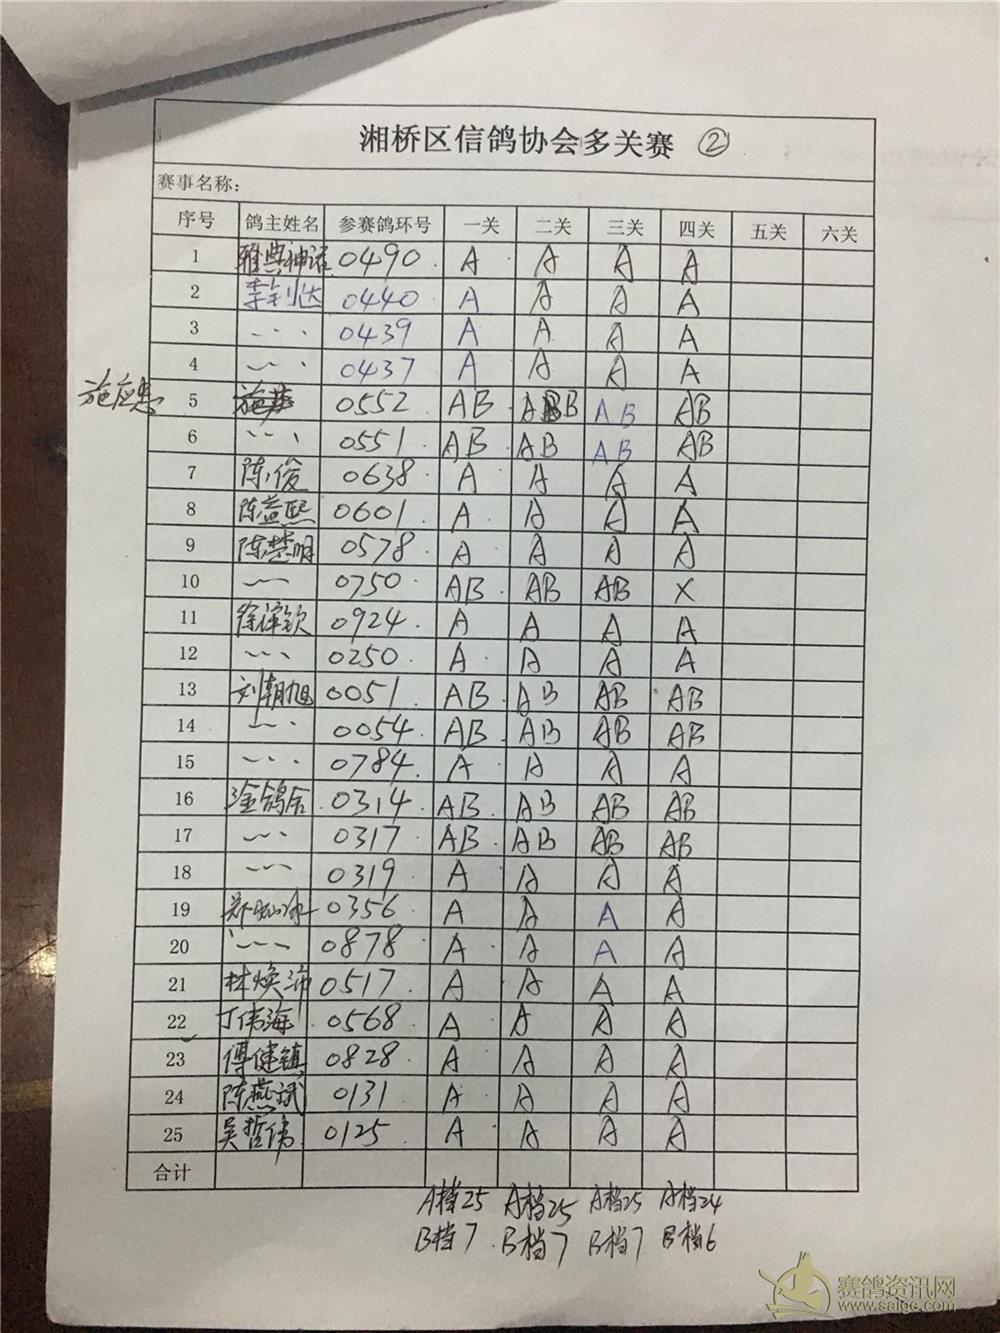 湘桥区信鸽协会多关赛 ②
赛事名称:
序号 鸽主姓名 参赛鸽环号 一关 二关 三关 四关 五关 六关
1 雅典神话 0490 A A A A
2 李钊达 0440 A A A A
3 〃 0439 A A A A
4 〃 0437 A A A A
施应惠 5 0552 AB ABB AB AB
6 〃 0551 AB AB AB AB
7 陈俊 0638 A A A A
8 陈益熙 0601 A A A A
9 陈楚明 0578 A A A A
10 〃 0750 AB AB AB X
11 徐泽钦 0924 A A A A
12 〃 0250 A A A A
13 刘朝旭 0051 AB AB AB AB
14 〃 0054 AB AB AB AB
15 〃 0784 A A A A
16 淦鸽舍 0314 AB AB AB AB
17 〃 0317 AB AB AB AB
18 〃 0319 A A A A
19 0356 A A A A
20 〃 0878 A A A A
21 林焕沛 0517 A A A A
22 丁伟海 0568 A A A A
23 傅健镇 0828 A A A A
24 陈燕斌 0131 A A A A
25 吴哲伟 0125 A A A A
合计
A档25 A档25 A档25 A档24
B档7 B档7 B档7 B档6
赛鸽资讯网
www.saige.com